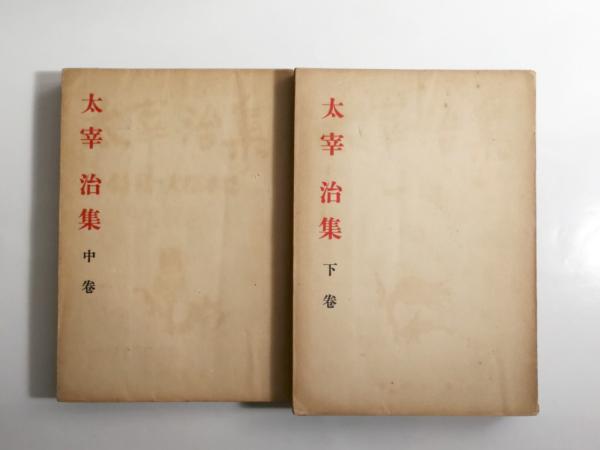 太宰治集
中卷
太宰治集
下卷